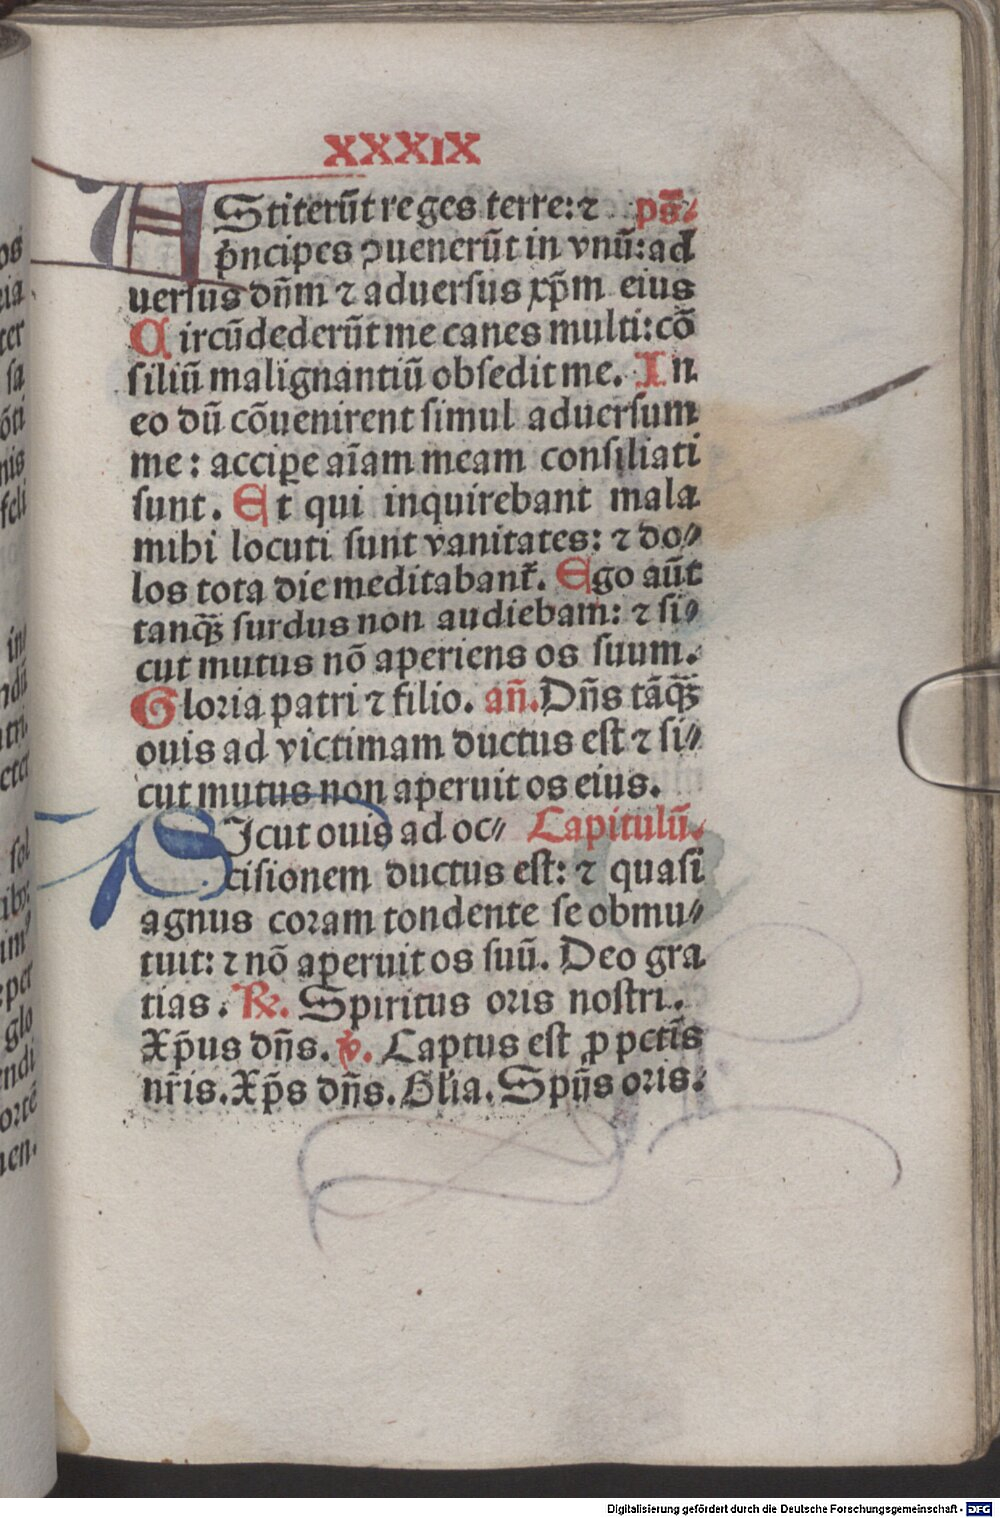 XXXIX
AStiterūt reges terre: ⁊ ps̄.
p̍ncipes ꝯuenerūt in vnū: ad
uerſus dn̄m ⁊ aduerſus xp̄m eius
Circūdederūt me canes multi: cō
ſiliū malignantiū obſedit me. In
eo dū cōuenirent ſimul aduerſum
me: acciꝑe aīam meam conſiliati
ſunt. Et qui inquirebant mala
mihi locuti ſunt vanitates: ⁊ do⸗
los tota die meditabanṫ. Ego aūt
tanq̄ꝫ ſurdus non audiebam: ⁊ ſi⸗
cut mutus nō aperiens os ſuum.
Gloria patri ⁊ filio. an̄. Dn̄s tāq̄ꝫ
ouis ad victimam ductus eſt ⁊ ſi⸗
cut mutus non aperuit os eius.
SIcut ouis ad oc⸗ Capitulū.
ciſionem ductus eſt: ⁊ quaſi
agnus coram tondente ſe obmu⸗
tuit: ⁊ nō aperuit os ſuū. Deo gra
tias. ℞. Spiritus oris noſtri.
Xp̄us dn̄s. ℣. Captus eſt ꝓ pctīs
nr̄is. Xp̄s dn̄s. Gl̄ia. Spūs oris.
Digitalisierung gefördert durch die Deutsche Forschungsgemeinschaft - DFG